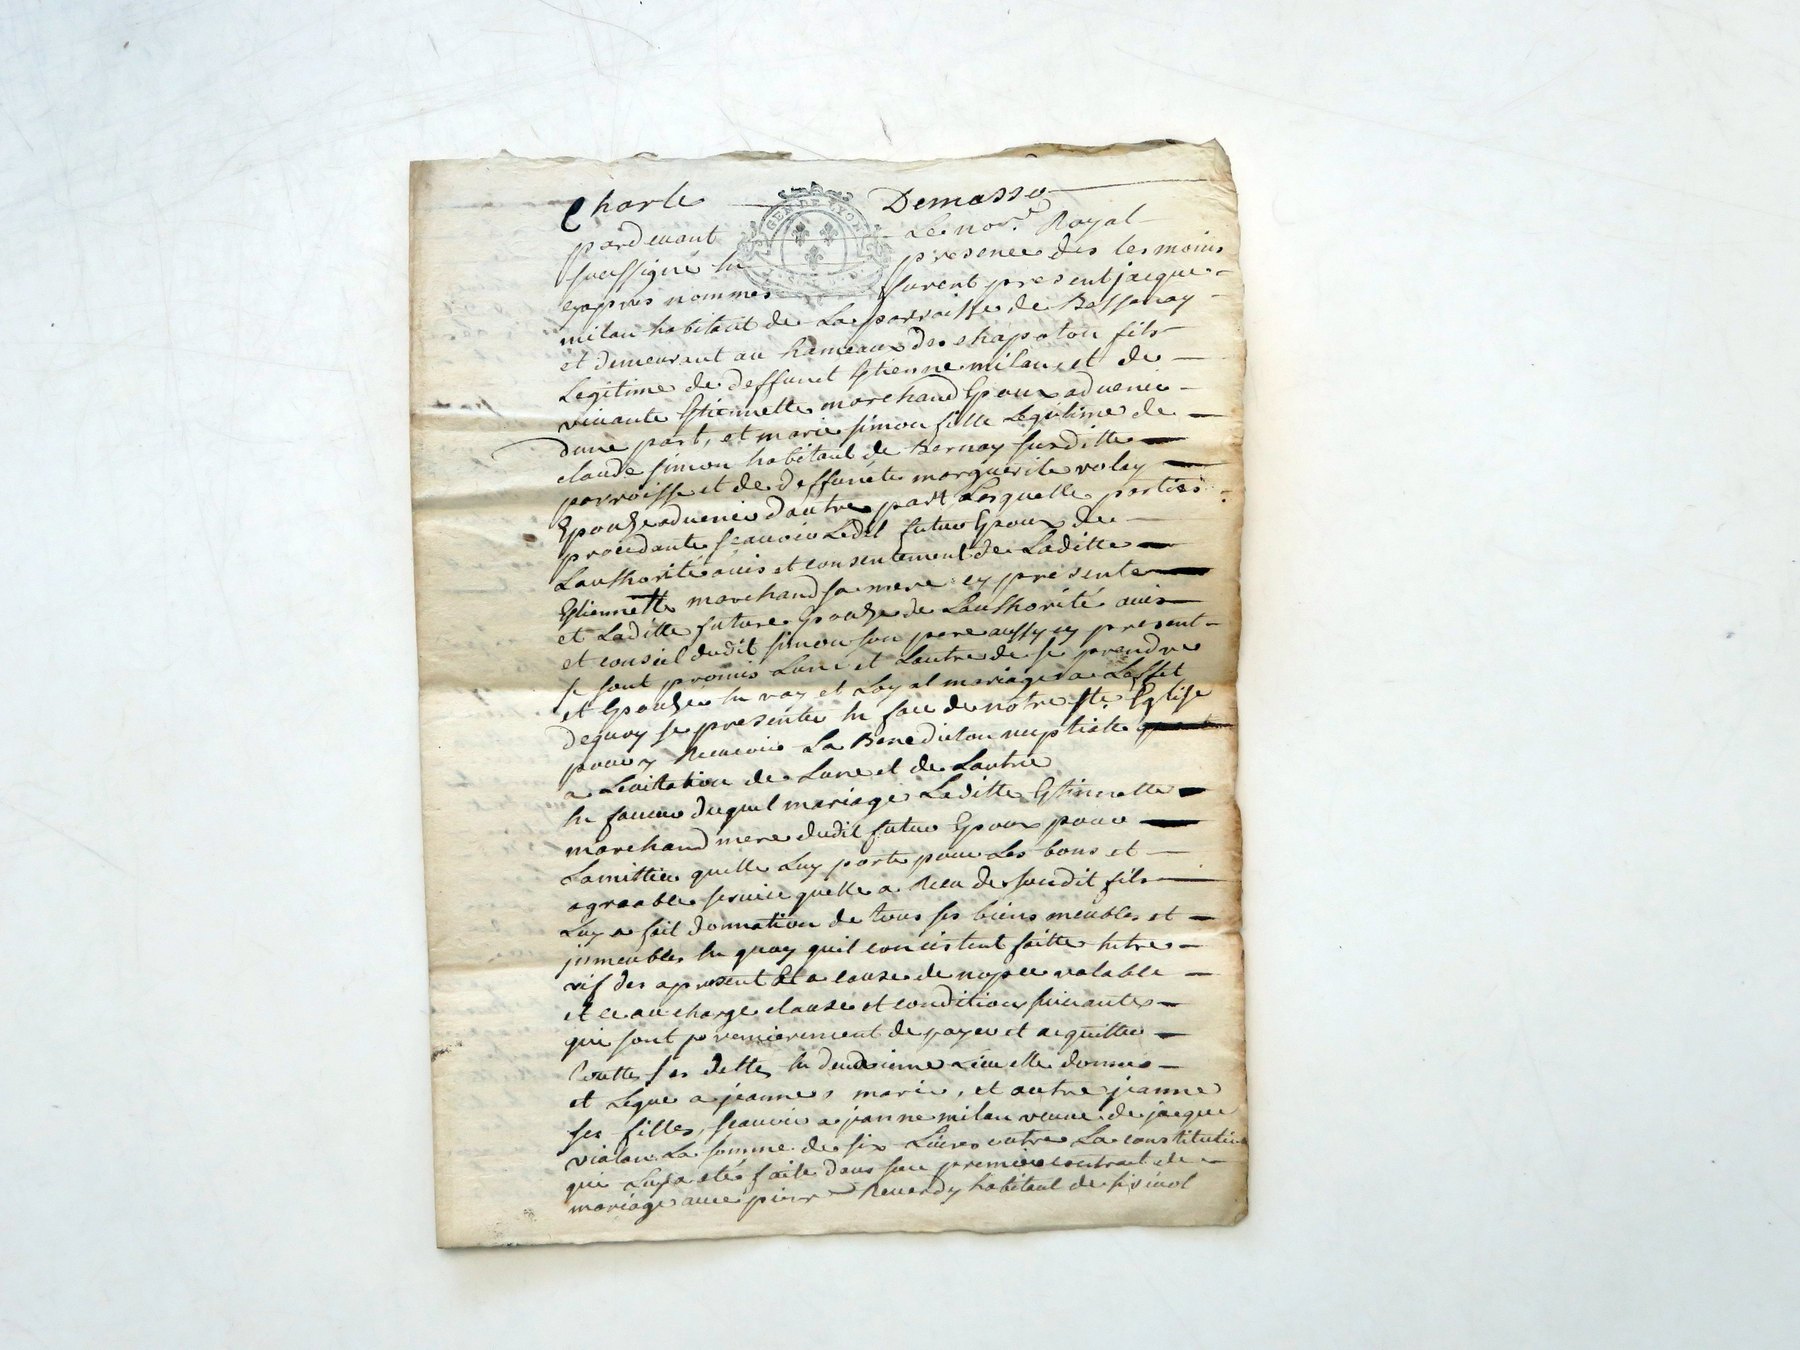 Charle Demasso
GEN DE LYON
pardevant Le no.re Royal
soussigné en presence des tesmoins
cyapres nommes furent present jacque
milan habitant de La parroisse de Bessenay
et demeurant au hameaux de chapoton fils
Legitime de deffunct Estienne milan, et de
vivante Estiennette marchand Epoux advenir
dune part, et marie simon fille Legitime de
claude simon habitant de Bernay susditte
parroisse et de deffuncte marguerite volay
Epouze advenir dautre part Lesquelle parties
procedante scauoir Ledit futur Epoux de
Lauthorité auis et consentement de Laditte
Estiennette marchand sa mere cy presente
et Laditte future Epouze de Lauthorité auis
et conseil dudit simon son pere aussy cy present
se sont promis Lun et Lautre de se prendre
et Epouzer en vray et Loyal mariage a Leffet
dequoy se presenter en face de notre Ste Eglise
pour y Receuoir La Benediction nuptialle
a Linitation de Lune et de Lautre
en faueur duquel mariage Laditte Estiennette
marchand mere dudit futur Epoux pour
Lamittier quelle Luy porte pour Les bons et
agreable seruice quelle a Receu de sondit fils
Luy a fait donnation de tous ses biens meubles et
jmmeubles en quoy quil concistent faitte entre
vif des apresent et a cause de nopce valable
et ce au charge clause et condition suiuante
qui sont premierement de payer et acquitter
touttes ses dettes en deuxieme Lieu elle donne
et Legue a jeanne, marie, et autre jeanne
ses filles, scauoir a jeanne milan veuue de jacque
vialan La somme de six Liures outre La constitution
qui Luy a eté faite dans son premier contract de
mariage auec pierre Reuerdy habitant de